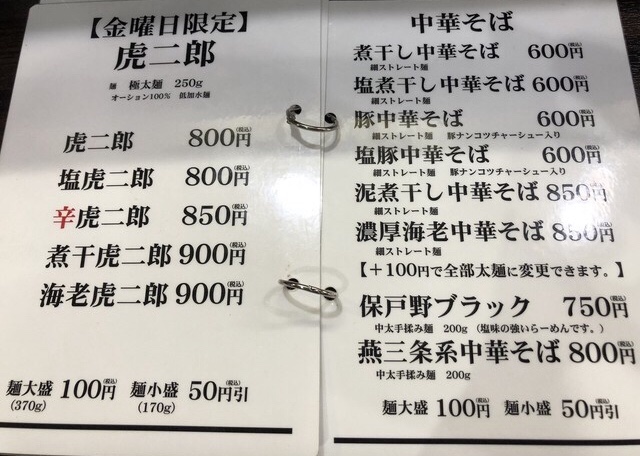 【金曜日限定】
虎二郎
麺 極太麺 250g
オーション100% 低加水麺
虎二郎 800円(税込)
塩虎二郎 800円(税込)
辛虎二郎 850円(税込)
煮干虎二郎 900円(税込)
海老虎二郎 900円(税込)
麺大盛 100円(税込) 麺小盛 50円引(税込)
(370g) (170g)
中華そば
煮干し中華そば 600円(税込)
細ストレート麺
塩煮干し中華そば 600円(税込)
細ストレート麺
豚中華そば 600円(税込)
細ストレート麺 豚ナンコツチャーシュー入り
塩豚中華そば 600円(税込)
細ストレート麺 豚ナンコツチャーシュー入り
泥煮干し中華そば 850円(税込)
細ストレート麺
濃厚海老中華そば 850円(税込)
細ストレート麺
【+100円で全部太麺に変更できます。】
保戸野ブラック 750円(税込)
中太手揉み麺 200g (塩味の強いらーめんです。)
燕三条系中華そば 800円(税込)
中太手揉み麺 200g
麺大盛 100円(税込) 麺小盛 50円引(税込)